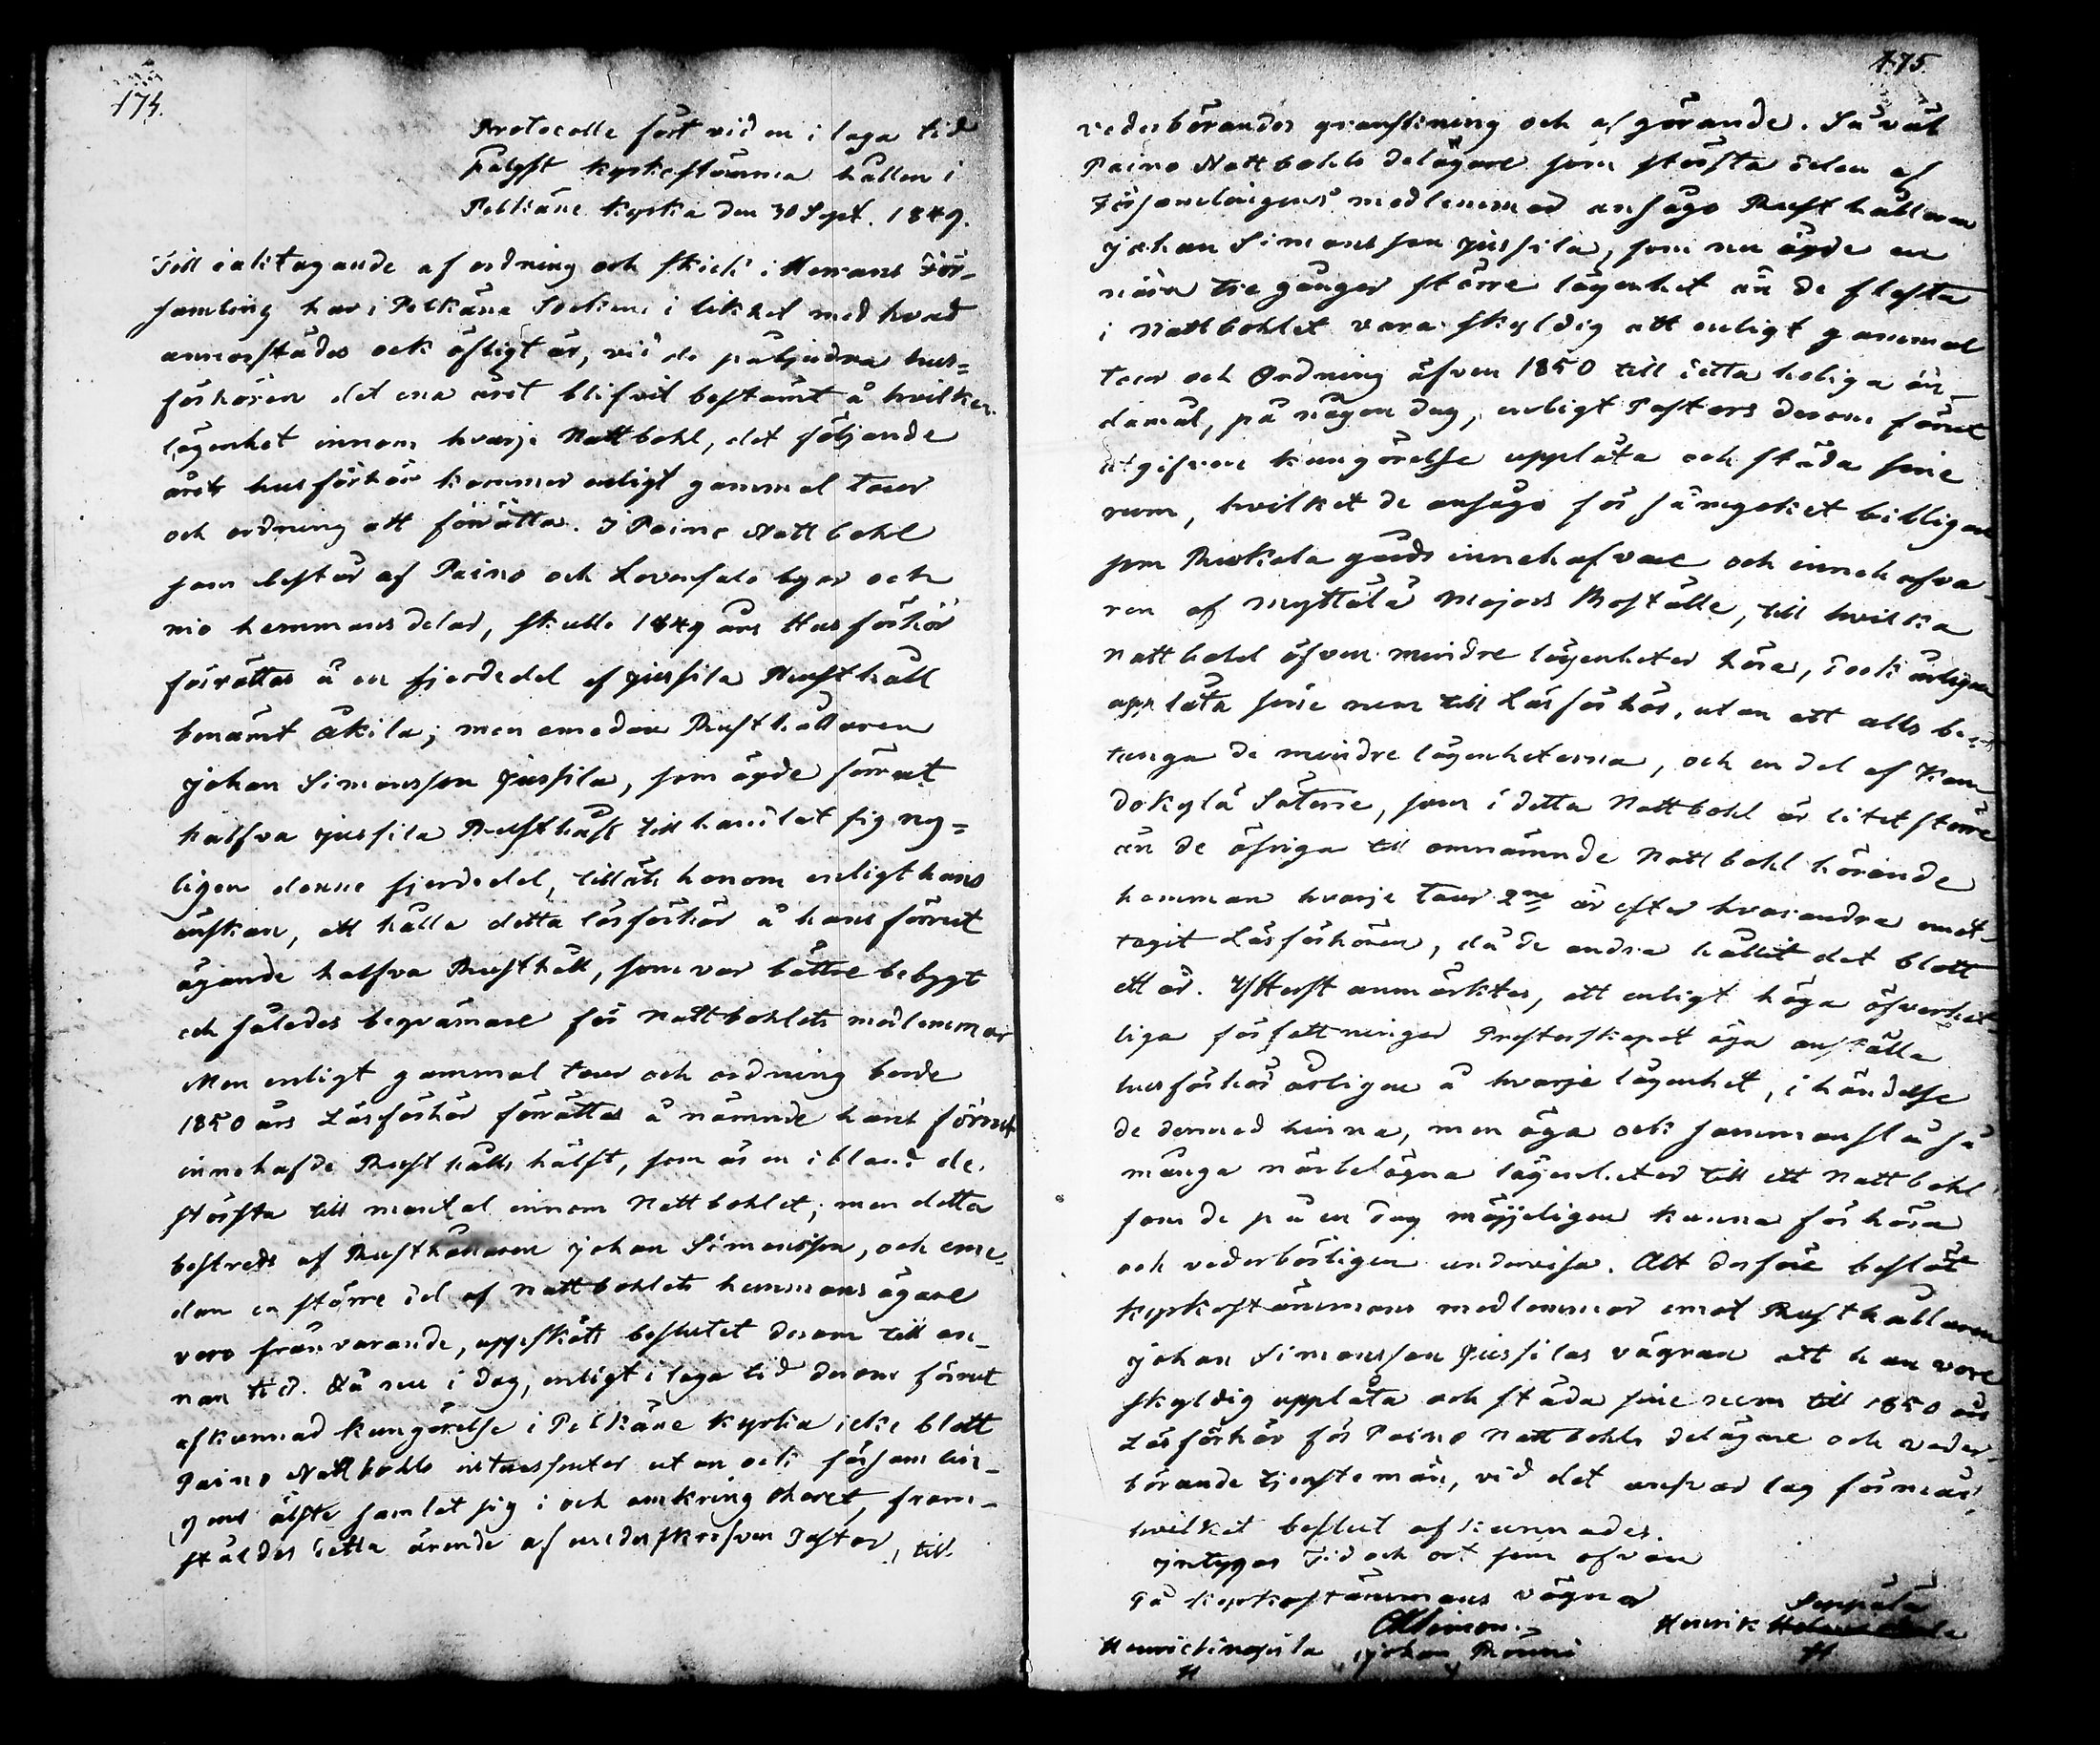 174.
Protocoll fört vid en i laga tid
pålyst kyrkostämma hållen i
Pelkäne kyrka den 30 Sept. 1849.
Till iakttagande af ordning och skick i Herrans För-
samling har i Pelkäne Socken i likhet med hvad
annorstädes ock öfligt är, vid de påbjudna hus-
förhören det ena året blifvit bestämt å hvilken
lägenhet innom hvarje Nattbohl, det följande
årets husförhör kommer enligt gammal tour
och ordning att förrättas. I Paino Nattbohl
som består af Paino och Lovensalo byar och
nio hemmans delar, skulle 1849 års Husförhör
förrättas å en fjerdedel af Jussila Rusthåll
benämt Äkilä; men emedan Rusthållaren
Johan Simonsson Jussila, som ägde förrut
halfva Jussila Rusthåll tillhandlat sig ny-
ligen denne fjerdedel, tilläts honom enligt hans
önskan, att hålla detta läsförhör å hans förrut
ägande halfva Rusthåll, som var bättre bebygt
och således beqvämare för Nattbohlets medlemmar
Men enligt gammal tour och ordning borde
1850 års Läsförhör förrättas å nämnde hans förrut
innehafde Rusthålls hälft, som är en ibland de
största till mantal innom Nattbohlet; men detta
bestreds af Rusthållaren Johan Simonsson, och eme-
dan en större del af Nattbohlets hemmans ägare
voro frånvarande, uppsköts beslutet derom till an-
nan tid. Då nu i dag, enligt i laga tid derom förrut
afkunnad kungörelse i Pelkäne kyrka icke blott
Paino Nattbohls intressenter utan ock försam lin-
gens älste samlat sig i och omkring Choret, fram-
stäldes detta ärende af undeskrefven Pastor, till
175.
vederbörandes granskning och afgörande. Så väl
Paino Nattbohls delägare som största delen af
Församlingens medlemmar ansågo Rusthållaren
Johan Simonsson Jussila, som nu ägde en
nära tre gånger större lägenhet än de flesta
i Nattbohlet vara skyldig att enligt gammal
tour och Ordning äfven 1850 till detta heliga än-
damål, på någon dag, enligt Pastors derom förrut
utgifven kungörelse upplåta och städa sine
rum, hvilket de ansågo för så mycket billigare
som Ruokola gårds innehafvare och innehafva-
ren af Myttälä Majors Boställe, till hvilka
Nattbohl äfven mindre lägenheter höra, dock årligen
upplåta sine rum till Läsförhör, utan att alls be-
tunga de mindre lägenheterna, och en del af Kan-
dokylä Säterie, som i detta Nattbohl är litet större
än de öfriga till omnämnde Nattbohl hörande
hemman hvarje tour 2ne år efter hvarandra emot-
tagit Läsförhören, då de andra hållit det blott
ett år. Ytterst anmärktes, att enligt höga öfverhet-
liga författningar Presterskapet äga anställa
husförhör årligen å hvarje lägenhet, i händelse
de dermed hinna, men äga ock sammanslå så
många närbelägna lägenheter till ett Nattbohl
som de på en dag möjjeligen kunna förhöra
och vederbörligen undervisa. Allt derföre beslöt
kyrkostämmans medlemmar emot Rusthållaren
Johan Simonsson Jussilas vägran att han vore
skyldig upplåta och städa sine rum till 1850 års
Läsförhör för Paino Nattbohls delägare och veder-
börande tjenstemän, vid det answar lag förmår,
hvilket beslut afkunnades.
Intygas Tid och ort som ofvan
På kyrkostämmans vägnar
Johan
Henrik
Seppälä